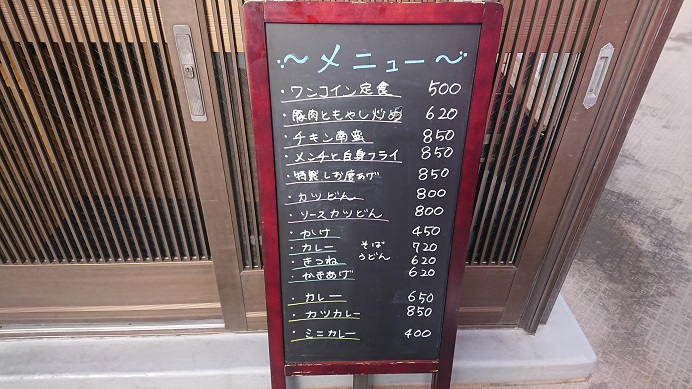 ～メニュー～
・ワンコイン定食 500
・豚肉ともやし炒め 620
・チキン南蛮 850
・メンチと白身フライ 850
・特製しお唐あげ 850
・カツどん 800
・ソースカツどん 800
・かけ 450
・カレー そば 720
・きつね うどん 620
・かきあげ 620
・カレー 650
・カツカレー 850
・ミニカレー 400